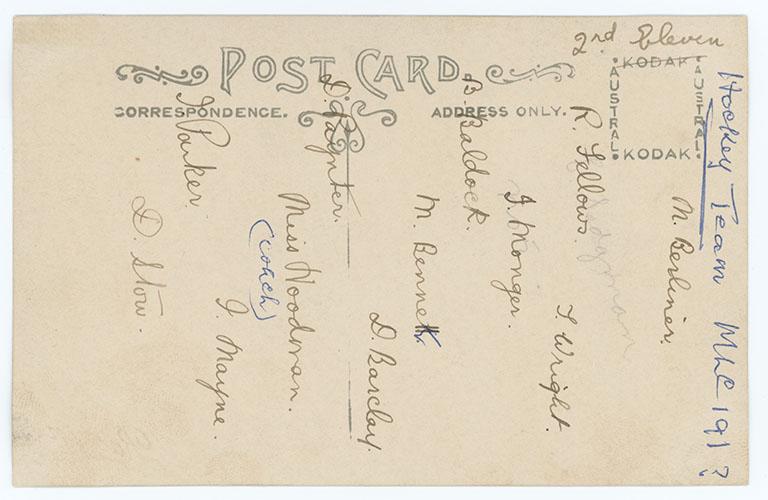 POST CARD
CORRESPONDENCE.
ADDRESS ONLY.
AUSTRAL
KODAK
AUSTRAL
KODAK
2nd Eleven
Hockey Team MLC 191?
M. Berliner.
R. Fellows.
T. Wright.
I. Monger.
B. Baldock.
M. Bennett
D. Barclay.
D. Paynter.
Miss Woodman.
(coach)
J. Parker.
I. Mayne.
D. Stow.